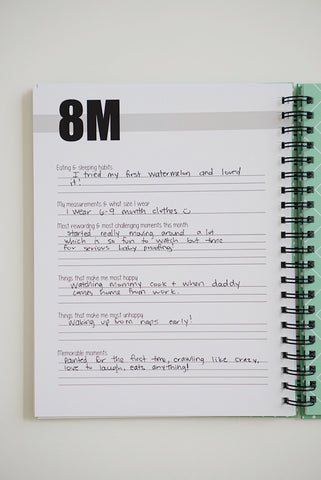 8M
Eating & sleeping habits
I tried my first watermelon and loved
it!
My measurements & what size I wear
I wear 6-9 month clothes
Most rewarding & most challenging moments this month
started really moving around a lot
which is so fun to watch but time
for serious baby proofing!
Things that make me most happy
Watching mommy cook + when daddy
comes home from work.
Things that make me most unhappy
Waking up from naps early!
Memorable moments
Painted for the first time, crawling like crazy,
love to laugh, eats anything!